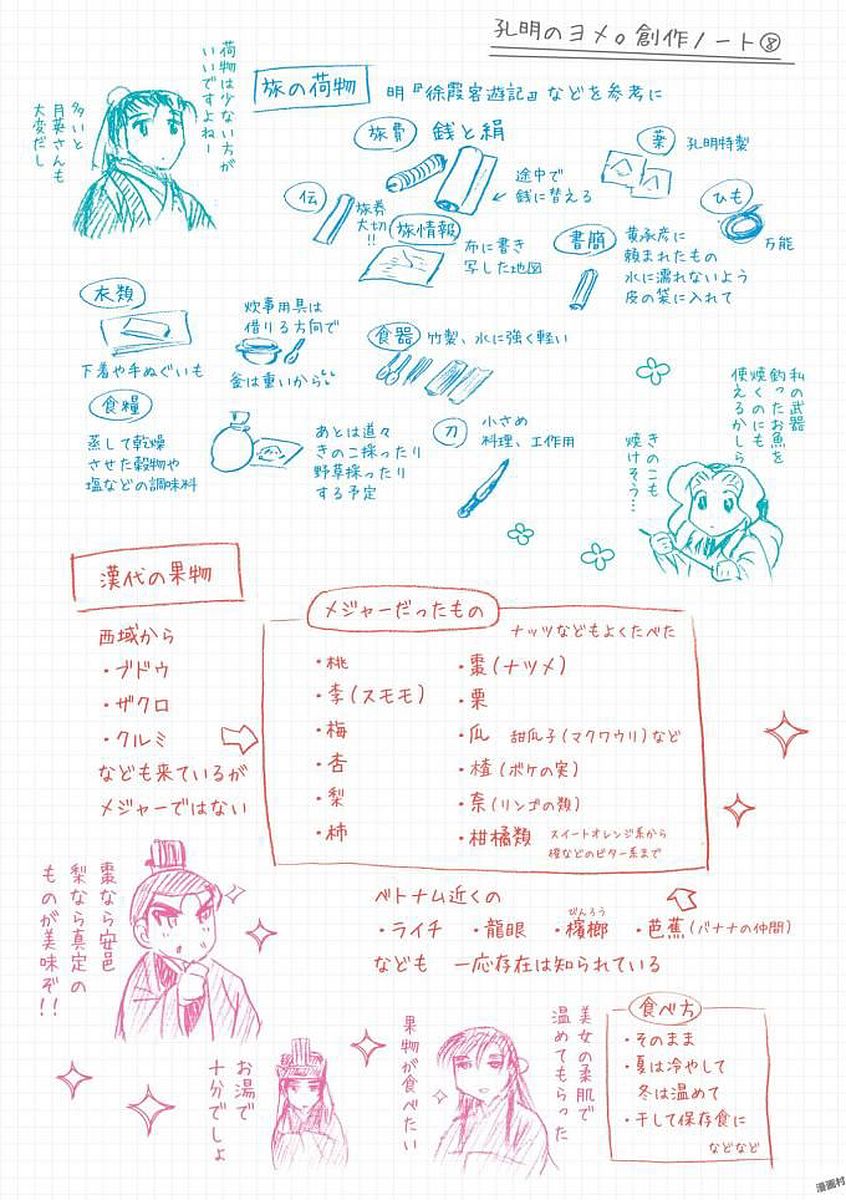 孔明のヨメ。創作ノート⑧
旅の荷物
明『徐霞客遊記』などを参考に
荷物は少ない方が
いいですよねー
多いと
月英さんも
大変だし
旅費
銭と絹
途中で
銭に替える
薬
孔明特製
伝
旅券
大切
!!
旅情報
布に書き
写した地図
書簡
黄承彦に
頼まれたもの
水に濡れないよう
皮の袋に入れて
ひも
万能
衣類
下着や手ぬぐいも
炊事用具は
借りる方向で
釜は重いから
食器
竹製、水に強く軽い
食糧
蒸して乾燥
させた穀物や
塩などの調味料
あとは道々
きのこ採ったり
野草採ったり
する予定
刀
小さめ
料理、工作用
私の武器
釣ったお魚を
焼くのにも
使えるかしら
きのこも
焼けそう…
漢代の果物
西域から
・ブドウ
・ザクロ
・クルミ
なども来ているが
メジャーではない
メジャーだったもの
ナッツなどもよくたべた
・桃
・李(スモモ)
・梅
・杏
・梨
・柿
・棗(ナツメ)
・栗
・瓜 甜瓜子(マクワウリ)など
・楂(ボケの実)
・奈(リンゴの類)
・柑橘類 スイートオレンジ系から
橙などのビター系まで
ベトナム近くの
・ライチ ・龍眼 ・檳榔 ・芭蕉(バナナの仲間)
びんろう
なども 一応存在は知られている
棗なら安邑
梨なら真定の
ものが美味ぞ!!
お湯で
十分でしょ
果物が食べたい
美女の柔肌で
温めてもらった
食べ方
・そのまま
・夏は冷やして
冬は温めて
・干して保存食に
などなど
漫画村